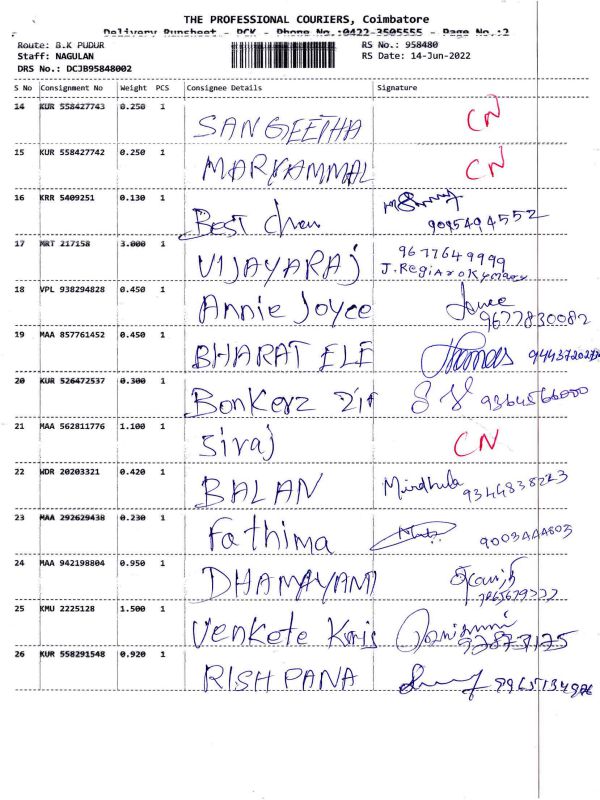 THE PROFESSIONAL COURIERS, Coimbatore
Delivery Runsheet - PCK - Phone No.:0422-3505555 - Page No.:2
Route: B.K PUDUR RS No.: 958480
Staff: NAGULAN RS Date: 14-Jun-2022
DRS No.: DCJB95848002
S No Consignment No Weight PCS Consignee Details Signature
14 KUR 558427743 0.250 1 SANGEETHA CN
15 KUR 558427742 0.250 1 MARYAMMAL CN
16 KRR 5409251 0.130 1 Best 9095494552
17 MRT 217158 3.000 1 VIJAYARAJ 9677649999
18 VPL 938294828 0.450 1 Annie Joyce 9677830082
19 MAA 857761452 0.450 1 BHARAT ELE
20 KUR 526472537 0.300 1 Bonkerz 9364566000
21 MAA 562811776 1.100 1 Siraj CN
22 WDR 20203321 0.420 1 BALAN Mirdhula
23 MAA 292629438 0.230 1 Fathima
24 MAA 942198804 0.950 1 DHAMAYANTI
25 KMU 2225128 1.500 1 Venkete Kris
26 KUR 558291548 0.920 1 RISHPANA